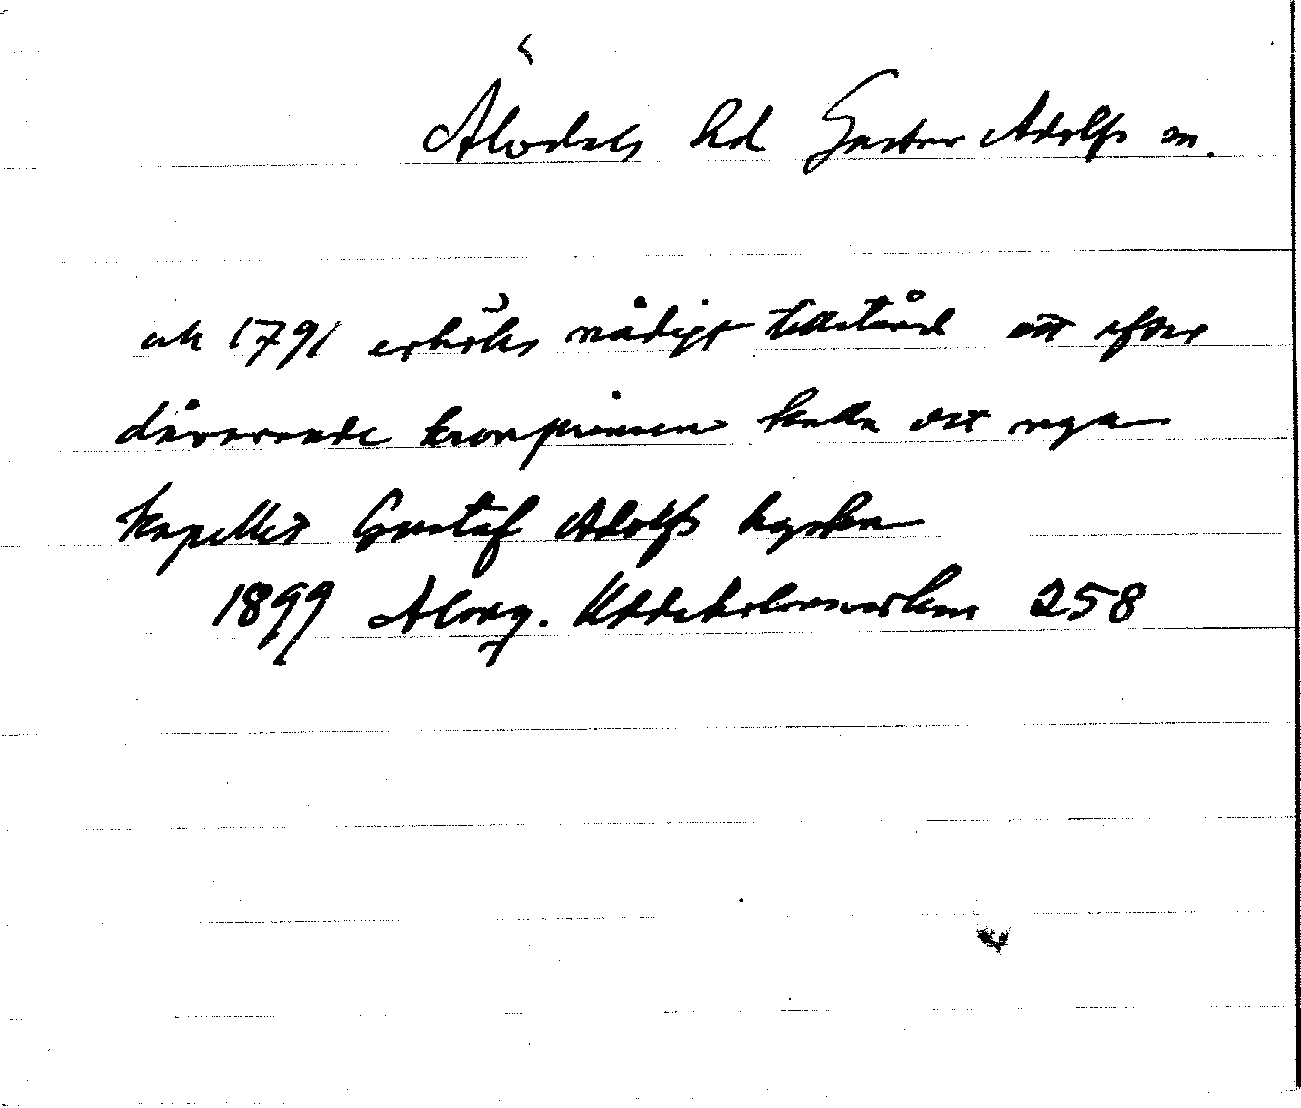 Älvdals hd Gustav Adolfs sn.
och 1791 erhölls nådigt tillstånd att efter
dåvarande kronprinsen kalla det nya
kapellet Gustaf Adolfs kyrka
1899 Along. Uddeholmsverken 258